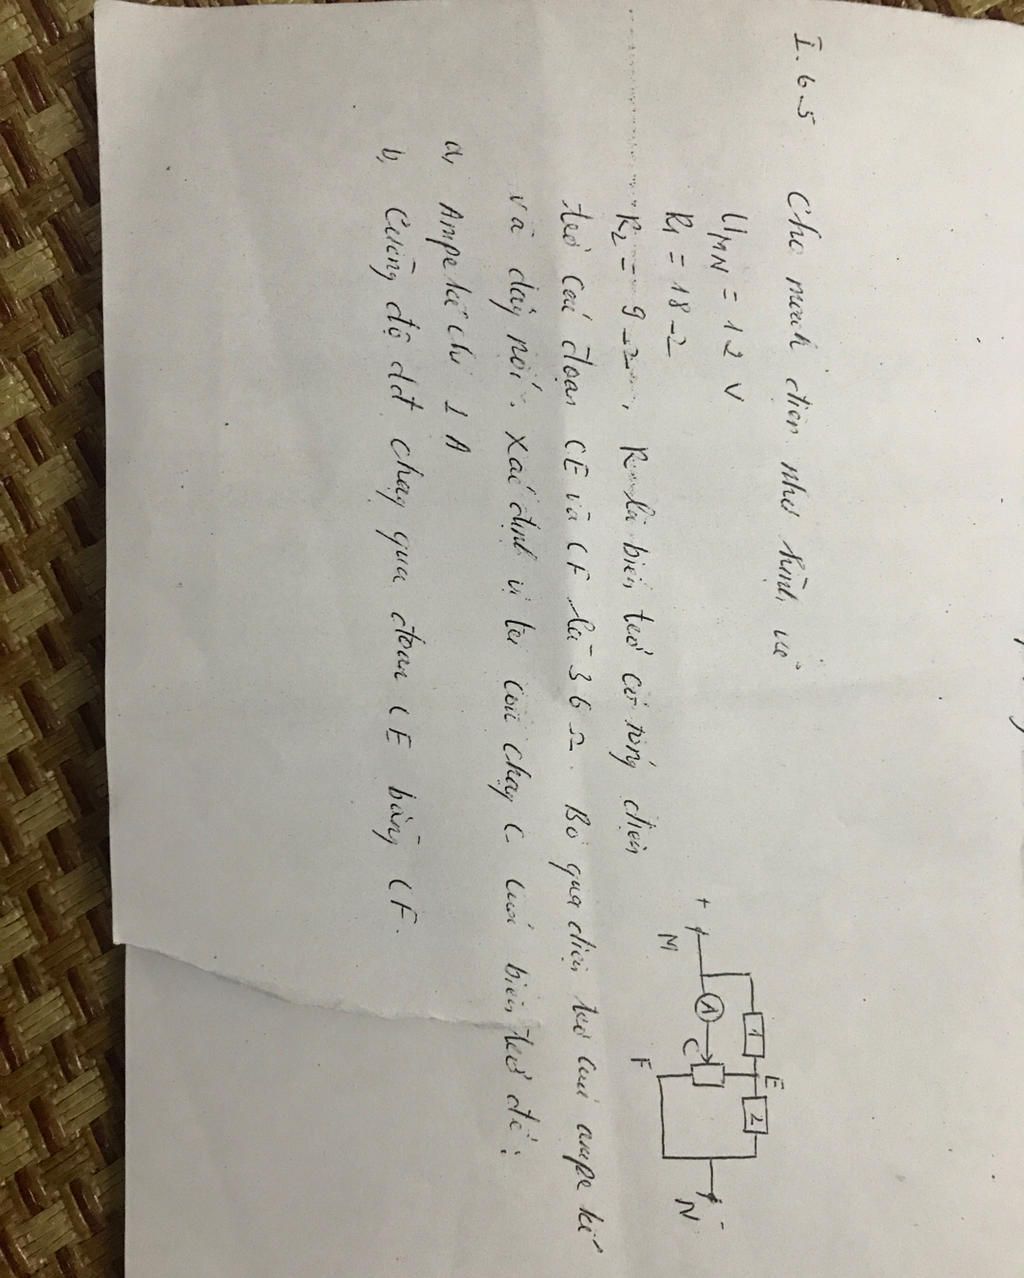 I. 6-5 Cho mạch điện như hình vẽ
UMN = 12 V
R1 = 18 Ω
R2 = 9 Ω, R là biến trở có tổng điện
trở các đoạn CE và CF là 36 Ω. Bỏ qua điện trở của ampe kế
và dây nối. Xác định vị trí con chạy C của biến trở để:
a, Ampe kế chỉ 1 A
b, Cường độ dđ chạy qua đoạn CE bằng CF.
+
M
A
1
E
2
C
F
N
-